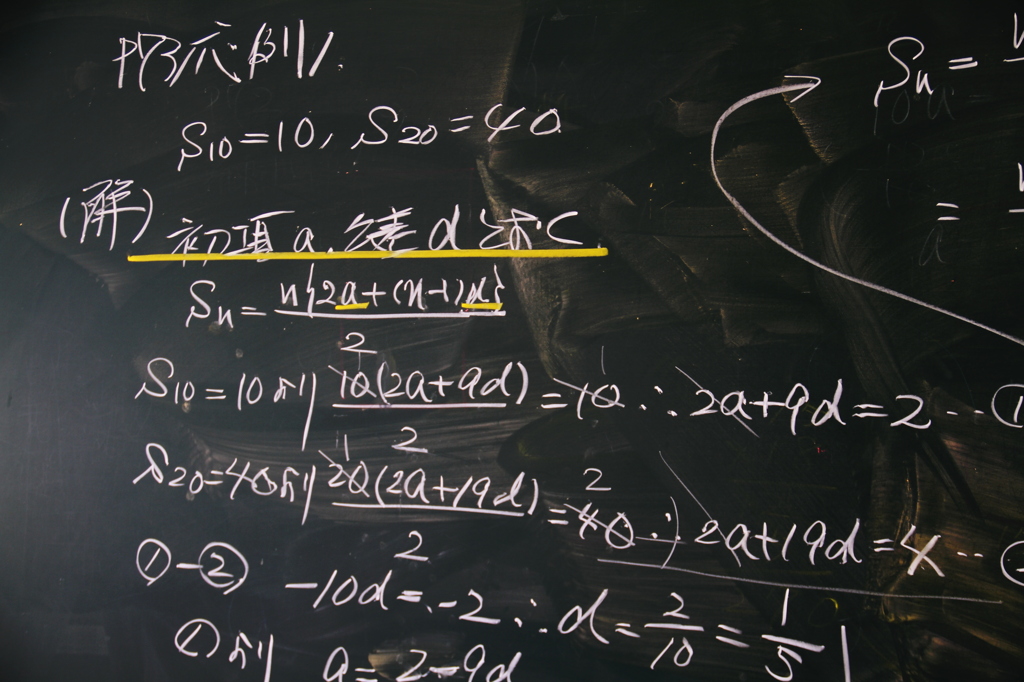 S₁₀=10, S₂₀=40
(解) 初項 a, 公差 d とおく
Sₙ= n{2a+(n-1)d}/2
S₁₀=10 より 10(2a+9d)/2 =10 ∴ 2a+9d=2 ‥ ①
S₂₀=40 より 20(2a+19d)/2 =40 ∴ 2a+19d=4 ‥
①-② -10d=-2 ∴ d=2/10=1/5
①より a=2-9d
Sₙ=
=